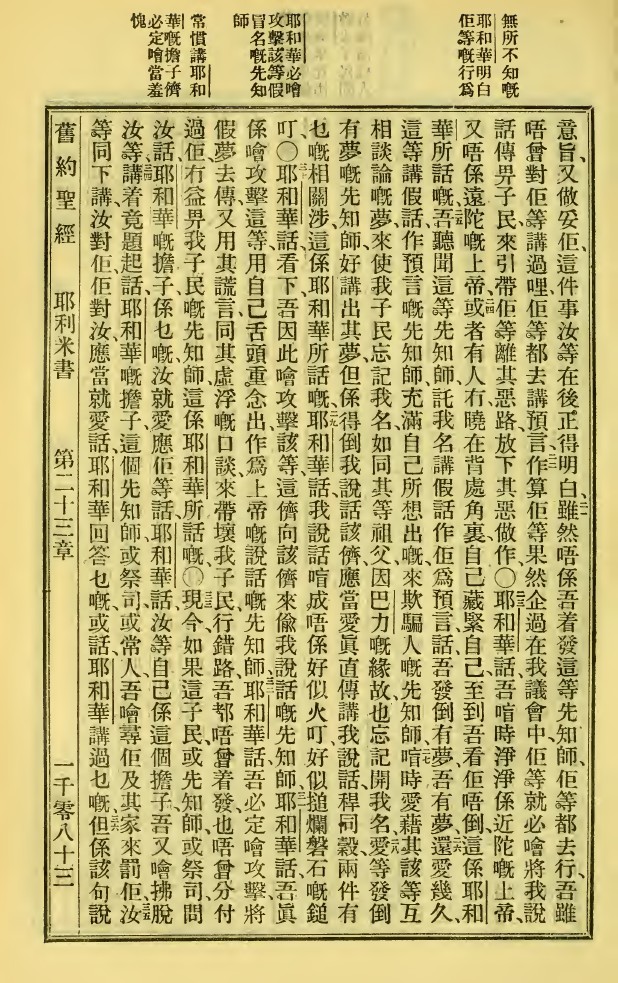 無所不知嘅
耶和華明白
佢等嘅行爲
耶和華必噲
攻擊該等假
冒名嘅先知
師
常慣講耶和
華嘅擔子儕
必定噲當羞
愧
意旨、又做妥佢、這件事汝等在後正得明白、雖然唔係吾着發這等先知師、佢等都去行、吾雖
唔曾對佢等講過哩佢等都去講預言、作算佢等果然企過在我議會中、佢等就必噲將我說
話傳畀子民來引帶佢等離其惡路放下其惡做作〇耶和華話、吾㖔時淨淨係近陀嘅上帝、
又唔係遠陀嘅上帝、或者有人有曉在背處角裏自己藏緊自己、至到吾看佢唔倒、這係耶和
華所話嘅、吾聽聞這等先知師、託我名講假話作佢爲預言、話吾發倒有夢、吾有夢、還愛幾久、
這等講假話作預言嘅先知師、充滿自己所想出嘅來欺騙人嘅先知師、㖔時愛藉其該等互
相談論嘅夢來使我子民忘記我名、如同其等祖父因巴力嘅緣故也忘記開我名、愛等發倒
有夢嘅先知師好講出其夢、但係得倒我說話該儕應當愛眞直傳講我說話、稈同穀兩件有
乜嘅相關涉、這係耶和華所話嘅、耶和華話、我說話㖔成唔係好似火叮、好似搥爛磐石嘅鎚
叮〇耶和華話、看下、吾因此噲攻擊該等、這儕向該儕來偷我說話嘅先知師、耶和華話、吾眞
係噲攻擊這等、用自己舌頭重念出作爲上帝嘅說話嘅先知師、耶和華話、吾必定噲攻擊將
假夢去傳、又用其謊言同其虛浮嘅口談來帶壞我子民行錯路、吾都唔曾着發也唔曾分付
過佢、冇益畀我子民嘅先知師、這係耶和華所話嘅、〇現今如果這子民、或先知師、或祭司、問
汝話、耶和華嘅擔子、係乜嘅、汝就愛應佢等話、耶和華話、汝等自己係這個擔子、吾又噲拂脫
汝等、講着竟題起話、耶和華嘅擔子、這個先知師、或祭司、或常人、吾噲尋佢及其家來罰佢、汝
等同下講、汝對佢、佢對汝、應當就愛話、耶和華回答乜嘅、或話、耶和華講過乜嘅、但係該句說
舊約聖經 耶利米書 第二十三章 一千零八十三